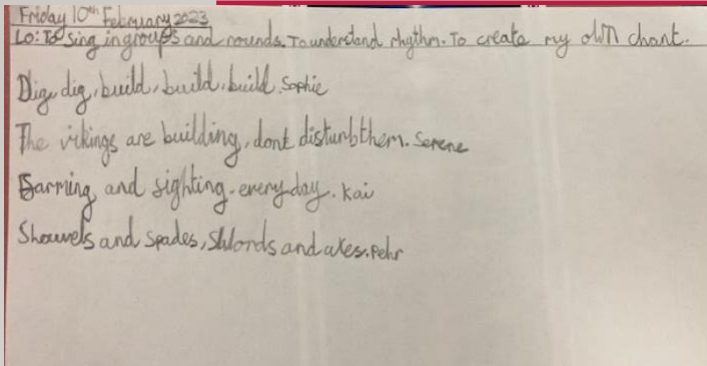 Friday 10th February 2023
LO: To sing in groups and rounds. To understand rhythm. To create my own chant.
Dig, dig, build, build, build. Sophie
The vikings are building, dont disturb them. Serene
Farming and sighting. everyday. Kai
Shouvels and spades, Swords and axes. Pehr